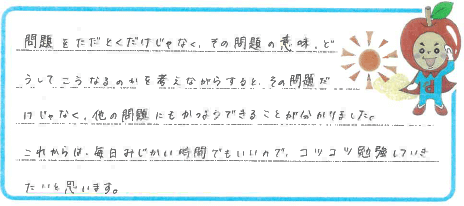 問題をただとくだけじゃなく、その問題の意味、ど
うしてこうなるのかを考えながらすると、その問題だ
けじゃなく、他の問題にもかつようできることが分かりました。
これからは、毎日みじかい時間でもいいので、コツコツ勉強していき
たいと思います。
d